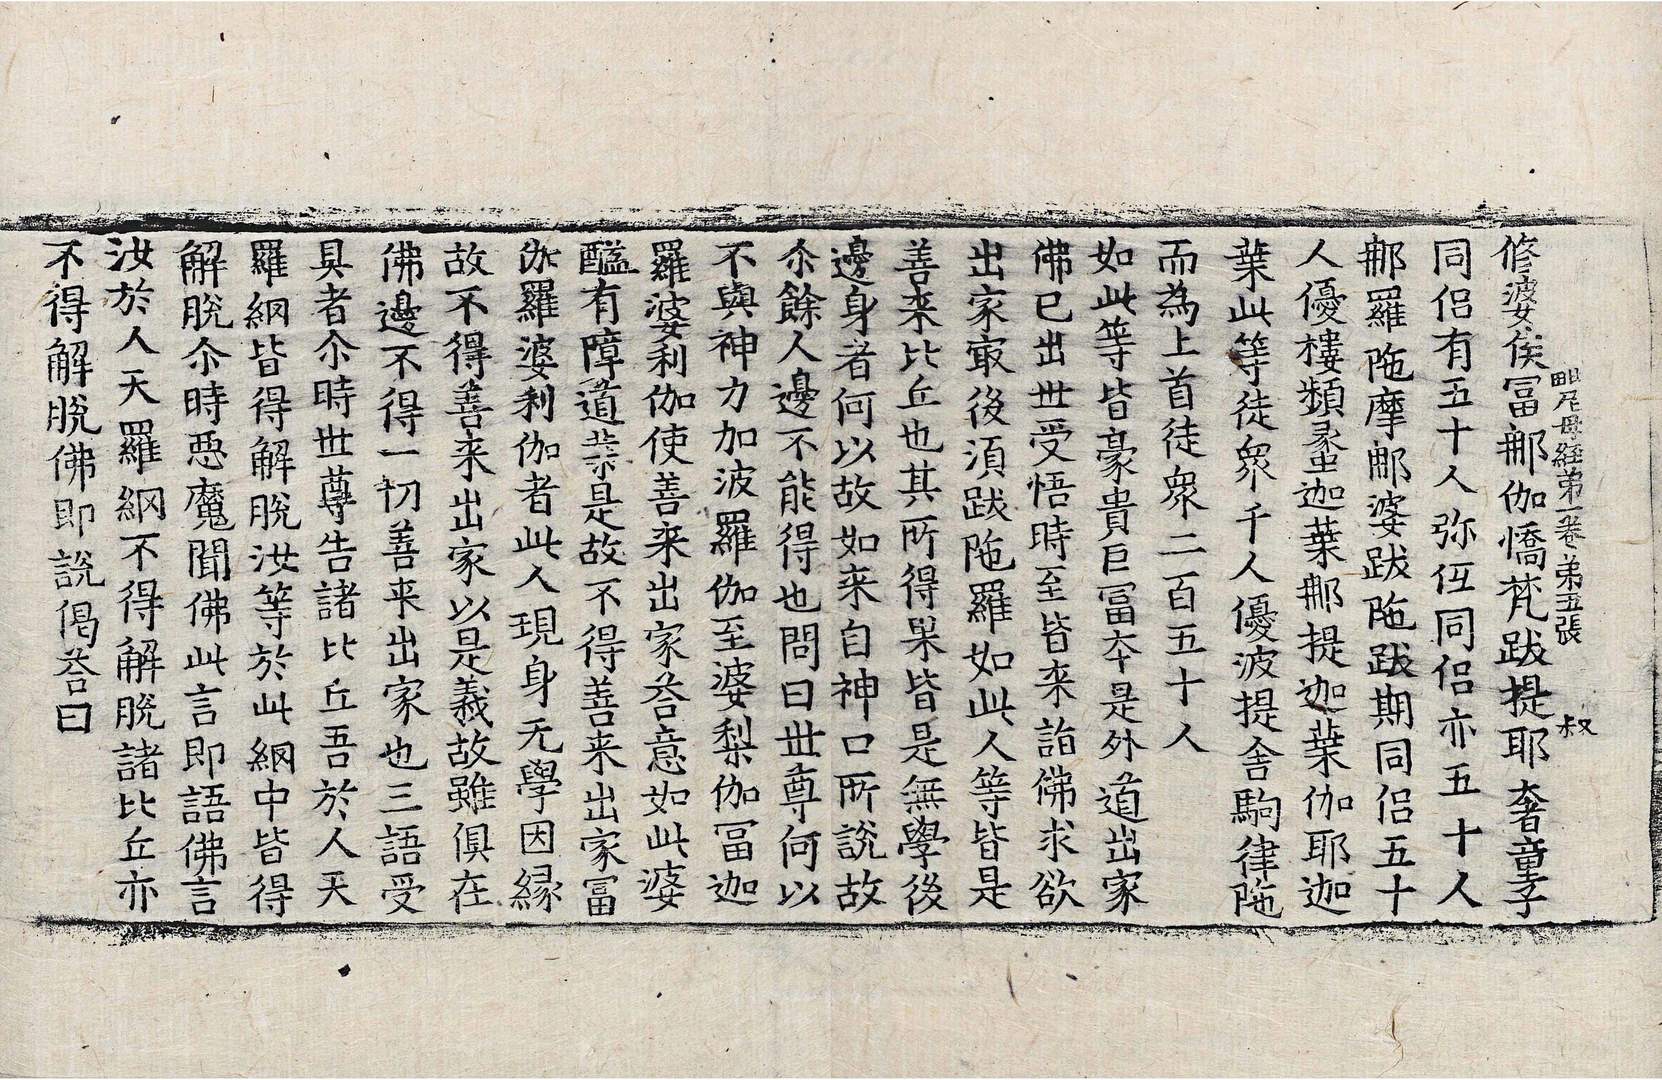 毗尼母経弟一卷 弟五張 叔
修婆侯冨郍伽憍梵跋提耶奢童子
同侣有五十人弥伍同侣亦五十人
郍羅陁摩郍婆跋陁跋期同侣五十
人優樓頻蠡迦葉郍提迦葉伽耶迦
葉此等徒衆千人優波提舍駒律陁
而為上首徒衆二百五十人
如此等皆豪貴巨冨夲是外道出家
佛已出世受悟時至皆来詣佛求欲
出家㝡後湏跋陁羅如此人等皆是
善来比丘也其所得果皆是無學後
邊身者何以故如来自神口所説故
尒餘人邊不能得也問曰世尊何以
不與神力加波羅伽至婆梨伽冨迦
羅婆利伽使善来出家荅意如此婆
醯有障道業是故不得善来出家冨
伽羅婆利伽者此人現身无學因緣
故不得善来出家以是義故雖俱在
佛邊不得一切善来出家也三語受
具者尒時世尊告諸比丘吾於人天
羅網皆得解脫汝等於此網中皆得
解脫尒時惡魔聞佛此言即語佛言
汝於人天羅網不得解脫諸比丘亦
不得解脫佛即説偈荅曰